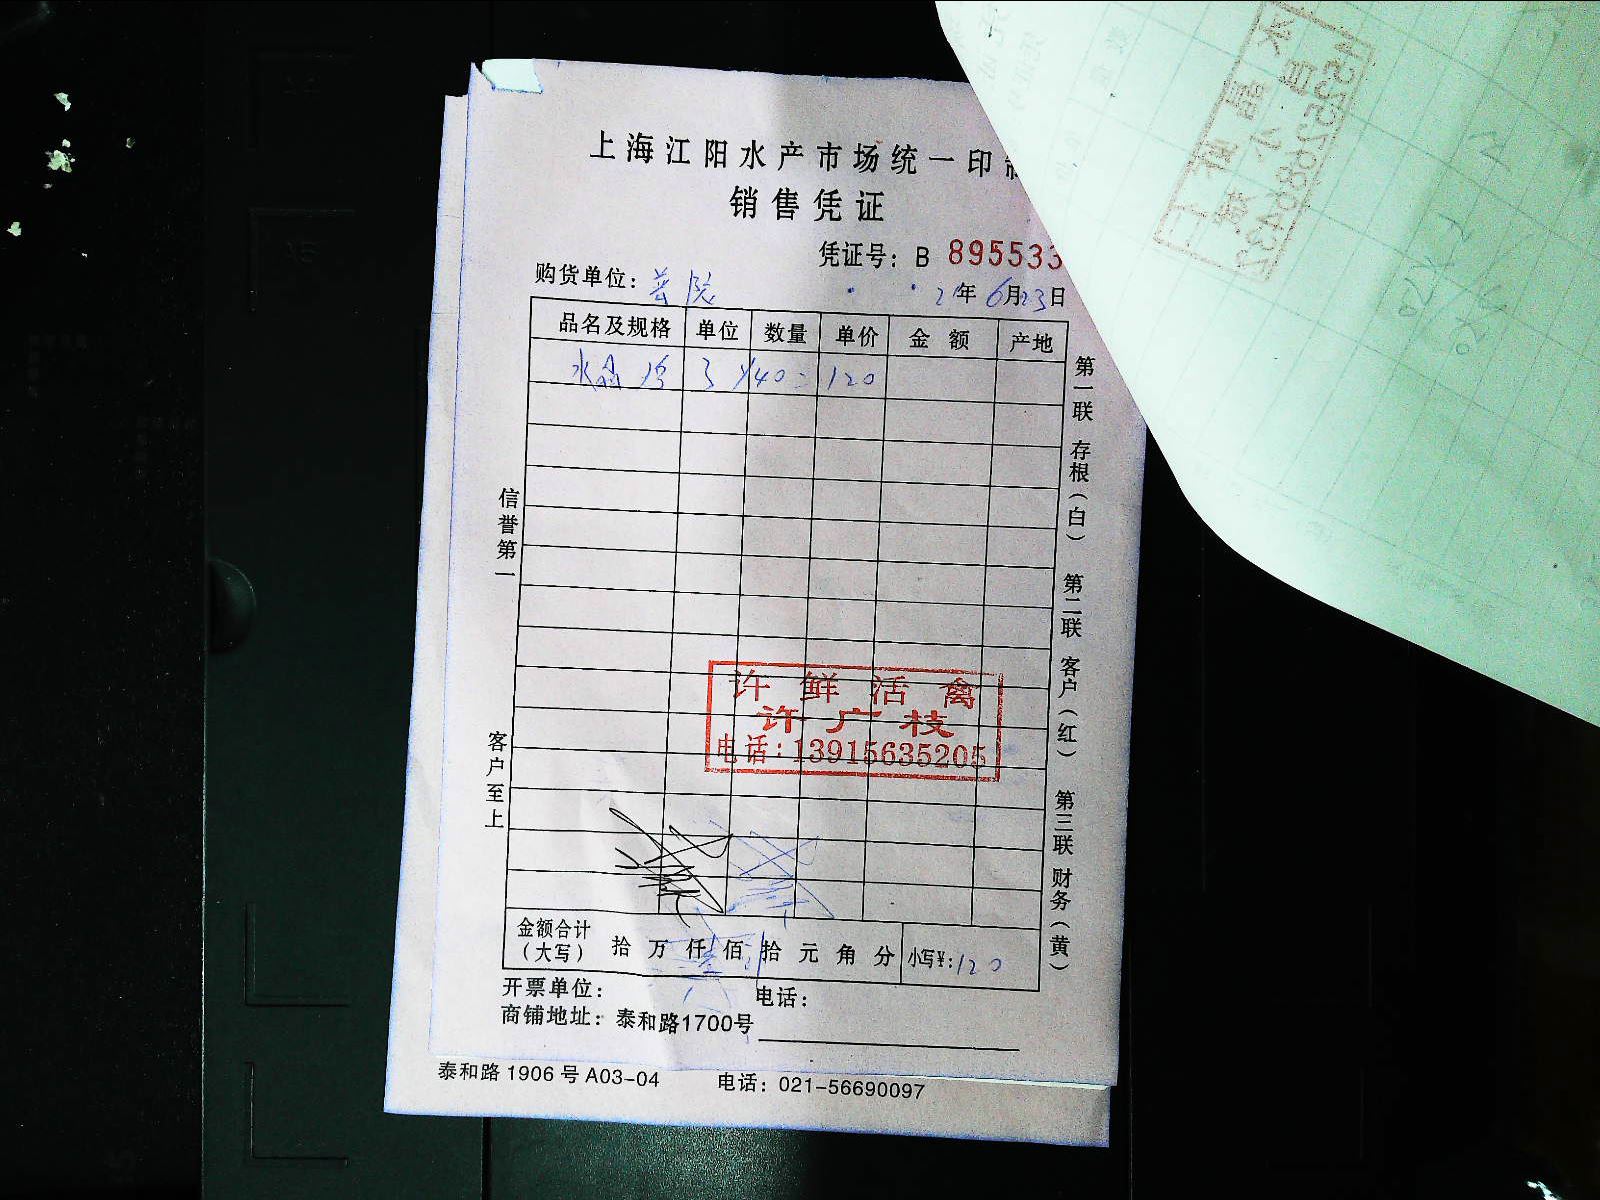 上海江阳水产市场统一印制
销售凭证
凭证号：B 895533
购货单位：
21年6月23日
品名及规格 单位 数量 单价 金额 产地
水 3 140 = 120
许鲜活禽
许广枝
电话：13915635205
金额合计（大写） 拾 万 仟 佰 拾 元 角 分 小写¥：120
开票单位： 电话：
商铺地址：泰和路1700号
泰和路1906号A03-04 电话：021-56690097
信誉第一
客户至上
第一联 存根（白） 第二联 客户（红） 第三联 财务（黄）